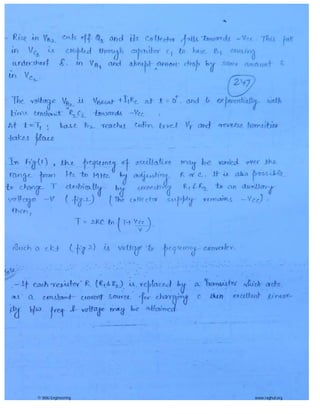 - Rise in VB2 cuts off Q2 and its Collector falls towards -Vcc. This fall
in VC2 is coupled through capacitor C1 to base B1 causing
undershoot δ in VB1 and abrupt drop by same amount δ
in VC2.
247
The voltage VB2 is t = 0+ and ↓ exponentially with
time constant R2C2 towards -Vcc.
At t = T1; base B2 reaches cutin level Vγ and reverse transition
takes place
In Fig(1), the frequency of oscillation may be varied over the
range from Hz to MHz by adjusting R or C. It is also possible
to change T electrically by connecting R1 & R2 to an auxiliary
voltage -V (fig.2) (The collector supply remains -Vcc).
then,
T = 2RC ln (1+ Vcc/V)
Such a ckt (fig 2) is voltage to frequency converter.
- If each resistor R (R1 & R2) is replaced by a transistor which acts
as a constant current source for charging C then excellent linear-
ity b/w freq & voltage may be obtained
© 360 Engineering
www.raghul.org